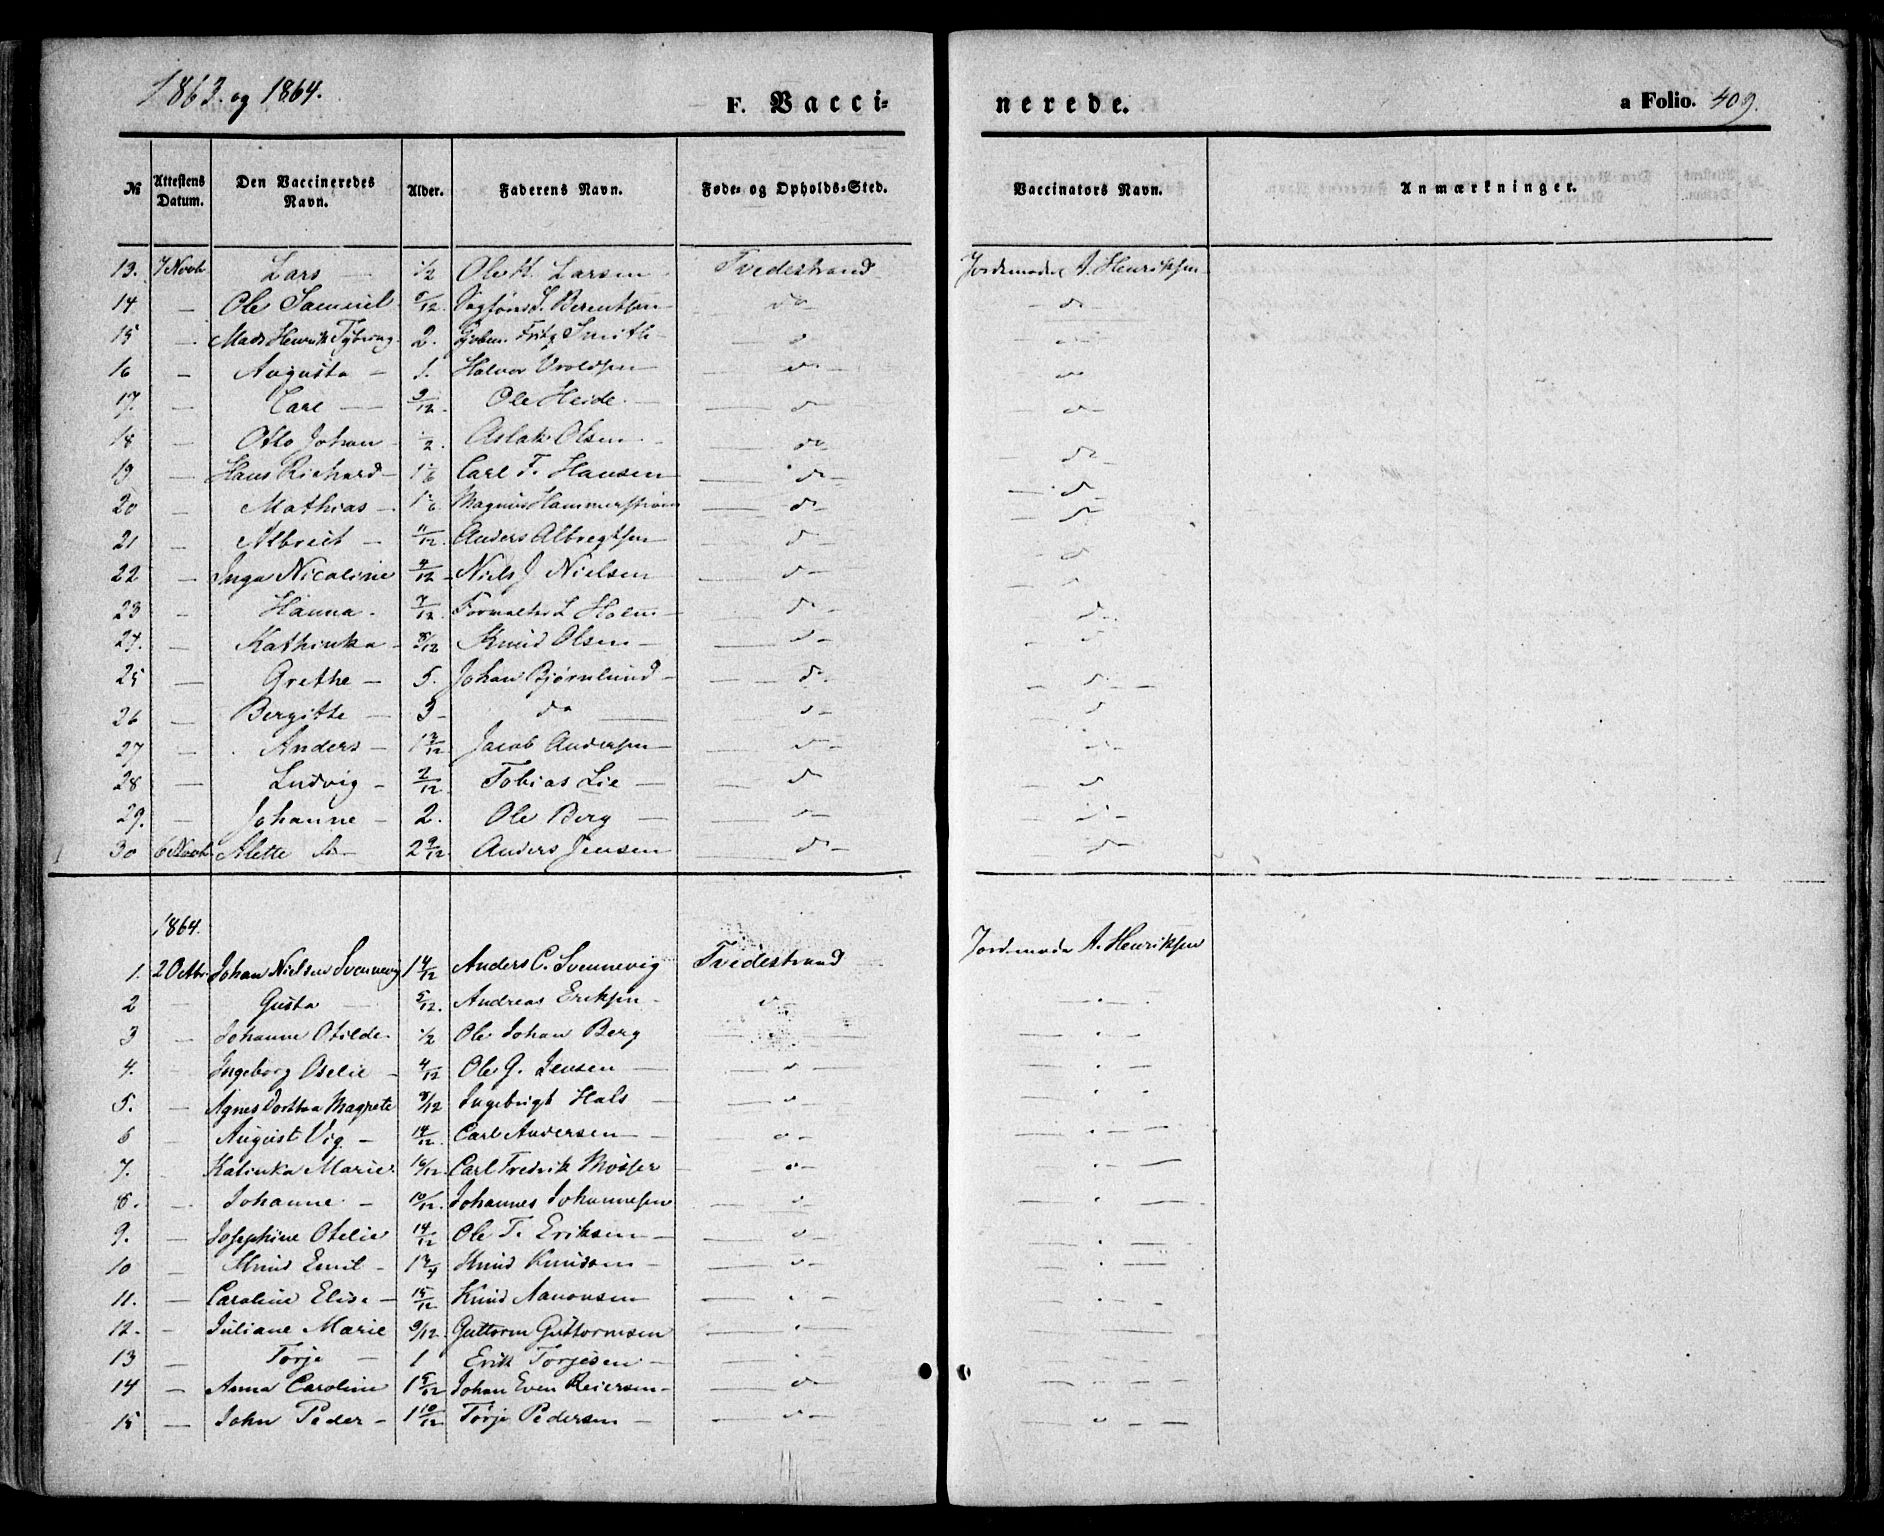 1863. og 1864.
F. Vaccinerede.
a Folio. 409.
№ Attestens Datum. Den Vaccineredes Navn. Alder. Faderens Navn. Føde- og Opholds-Sted. Vaccinators Navn. Anmærkninger.
13. 7 Novb. Lars — 1/2 Ole H. Larsen Tvedestrand Jordemoder A. Henriksen
14 — Ole Samuel /12 Berentsen do do
15 — Mads Henrik 2. Fritz Smith do
16 — Augusta — 1. Halvor Vroldsen — do do
17. — Carl — 9/12 Ole Heide — do do
18 — Otto Johan 1/2 Aslak Olsen do do
19 — Hans Richard — Carl F. Hansen do do
20 — Mathias — Magnus Hammerstrøm do do
21 — Albreit — 11/12 Anders Albregtsen do do
22 — Inga Nicoline 4/12 Niels J. Nielsen do
23 — Hanna 7/12 L Holm do do
24. — Kathinka 8/12 Knud Olsen — do
25 — Grethe — 5. Johan Bjørnlund — do do
26 — Bergitte — 3 do do do
27 — Anders — 1 3/12 Jacob Andersen — do
28 — Ludvig — 2/12 Tobias Lie — do do
29. — Johanne — 2. Ole Berg — do
30 6 Novb. Alette 2 9/12 Anders Jensen do do
1864.
1. 2 Octbr. Johan Nielsen Svennevig 14/12 Anders C. Svennevig Tvedestrand Jordemoder A. Henriksen
2 Gusta — 5/12. Andreas Eriksen — do
3 — Johanne Otilde 1/2 Ole Johan Berg
4. — Ingeborg Oselie — 4/12 Ole G. Jensen —
5. — Agnes Dorthea Magrete 8/12 Ingebrigt Hals —
6 — August Vig — 14/12 Carl Andersen —
7. Katinka Marie 16/12 Carl Fredrik —
8. — Johanne — 10/12. Johannes Johannesen
9. — Josephine Otelie 14/12 Ole T. Eriksen —
10 — Knud Emil — 1 3/4 Knud Knudsen —
11. — Caroline Elise — 15/12 Knud Aanonsen
12. — Juliane Marie 9/12 Guttorm Guttormsen
13 — Torje — 1 Erik Torjesen —
14 — Anna Caroline 1 5/12 Johan Even Reiersen —
15 — John Peder — 1 10/12 Torje Pedersen —